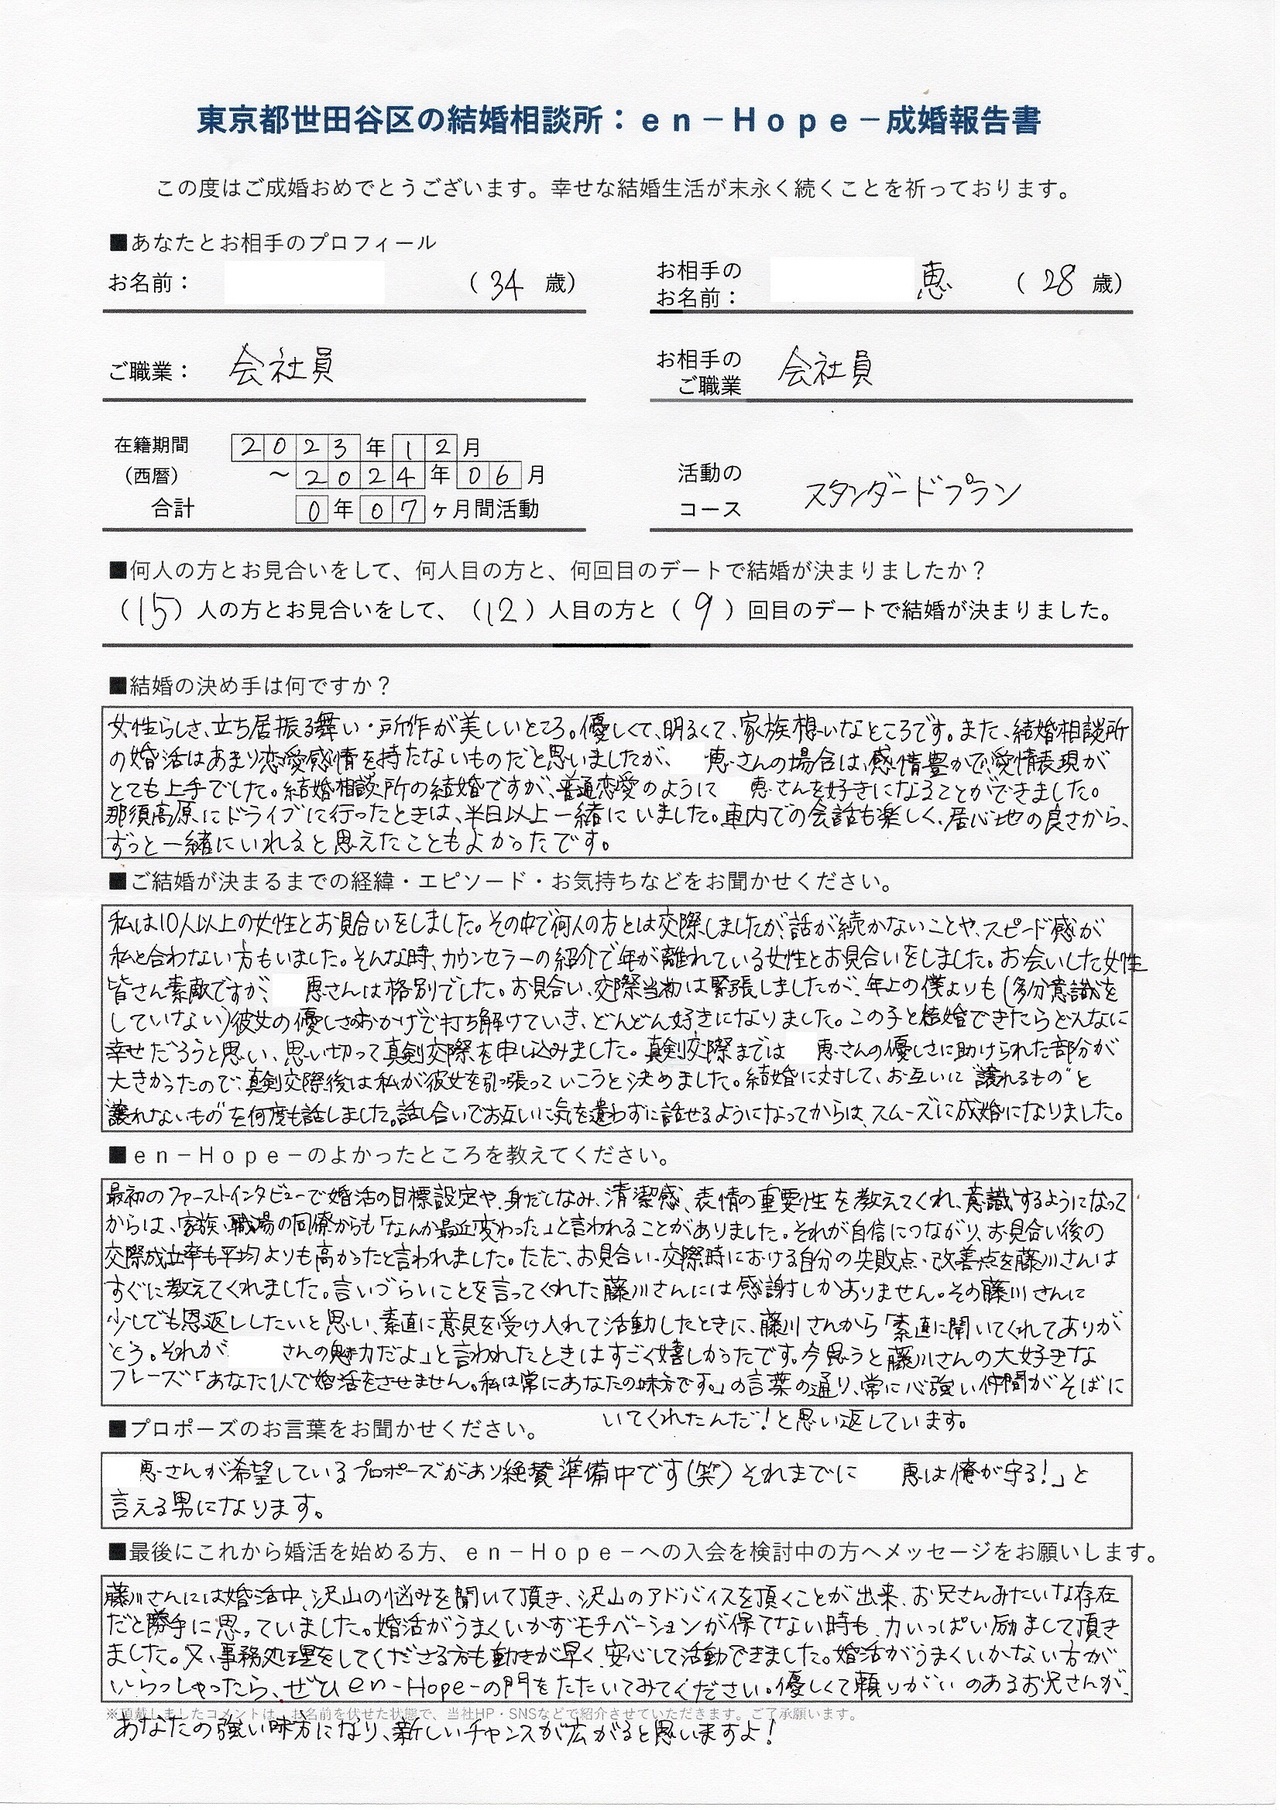 東京都世田谷区の結婚相談所：ｅｎ－Ｈｏｐｅ－成婚報告書
この度はご成婚おめでとうございます。幸せな結婚生活が末永く続くことを祈っております。
■あなたとお相手のプロフィール
お名前： （34 歳）
お相手の
お名前： 恵 （28 歳）
ご職業： 会社員
お相手の
ご職業 会社員
在籍期間 2023年12月
（西暦） ～2024年06月
合計 0年07ヶ月間活動
活動の
コース スタンダードプラン
■何人の方とお見合いをして、何人目の方と、何回目のデートで結婚が決まりましたか？
（15）人の方とお見合いをして、（12）人目の方と（9）回目のデートで結婚が決まりました。
■結婚の決め手は何ですか？
女性らしさ、立ち居振る舞い・所作が美しいところ。優しくて、明るくて、家族想いなところです。また、結婚相談所
の婚活はあまり恋愛感情を持たないものだと思いましたが、 恵さんの場合は、感情豊かで、愛情表現が
とても上手でした。結婚相談所の結婚ですが、普通恋愛のように 恵さんを好きになることができました。
那須高原にドライブに行ったときは、半日以上一緒にいました。車内での会話も楽しく、居心地の良さから、
ずっと一緒にいれると思えたこともよかったです。
■ご結婚が決まるまでの経緯・エピソード・お気持ちなどをお聞かせください。
私は10人以上の女性とお見合いをしました。その中で何人の方とは交際しましたが、話が続かないことや、スピード感が
私と合わない方もいました。そんな時、カウンセラーの紹介で年が離れている女性とお見合いをしました。お会いした女性
皆さん素敵ですが、 恵さんは格別でした。お見合い、交際当初は緊張しましたが、年上の僕よりも（多分意識を
していない）彼女の優しさのおかげで打ち解けていき、どんどん好きになりました。この子と結婚できたらどんなに
幸せだろうと思い、思い切って真剣交際を申し込みました。真剣交際までは 恵さんの優しさに助けられた部分が
大きかったので、真剣交際後は私が彼女を引っ張っていこうと決めました。結婚に対して、お互いに"譲れるもの"と
譲れないもの"を何度も話しました。話し合いでお互いに気を遣わずに話せるようになってからは、スムーズに成婚になりました。
■ｅｎ－Ｈｏｐｅ－のよかったところを教えてください。
最初のファーストインタビューで婚活の目標設定や、身だしなみ、清潔感、表情の重要性を教えてくれ、意識するようになって
からは、家族・職場の同僚からも「なんか最近変わった」と言われることがありました。それが自信につながり、お見合い後の
交際成立率も平均よりも高かったと言われました。ただ、お見合い・交際時における自分の失敗点・改善点を藤川さんは
すぐに教えてくれました。言いづらいことを言ってくれた藤川さんには感謝しかありません。その藤川さんに
少しでも恩返ししたいと思い、素直に意見を受け入れて活動したときに、藤川さんから「素直に聞いてくれてありが
とう。それが さんの魅力だよ」と言われたときはすごく嬉しかったです。今思うと藤川さんの大好きな
フレーズ「あなた1人で婚活をさせません。私は常にあなたの味方です。」の言葉の通り、常に心強い仲間がそばに
いてくれたんだ！と思い返しています。
■プロポーズのお言葉をお聞かせください。
恵さんが希望しているプロポーズがあり絶賛準備中です（笑）それまでに 恵は俺が守る！」と
言える男になります。
■最後にこれから婚活を始める方、ｅｎ－Ｈｏｐｅ－への入会を検討中の方へメッセージをお願いします。
藤川さんには婚活中、沢山の悩みを聞いて頂き、沢山のアドバイスを頂くことが出来、お兄さんみたいな存在
だと勝手に思っていました。婚活がうまくいかずモチベーションが保てない時も、力いっぱい励まして頂き
ました。又、事務処理をしてくださる方も動きが早く、安心して活動できました。婚活がうまくいかない方が
いらっしゃったら、ぜひen-Hope-の門をたたいてみてください。優しくて頼りがいのあるお兄さんが、
※頂戴しましたコメントは、お名前を伏せた状態で、当社HP・SNSなどで紹介させていただきます。ご了承願います。
あなたの強い味方になり、新しいチャンスが広がると思いますよ！